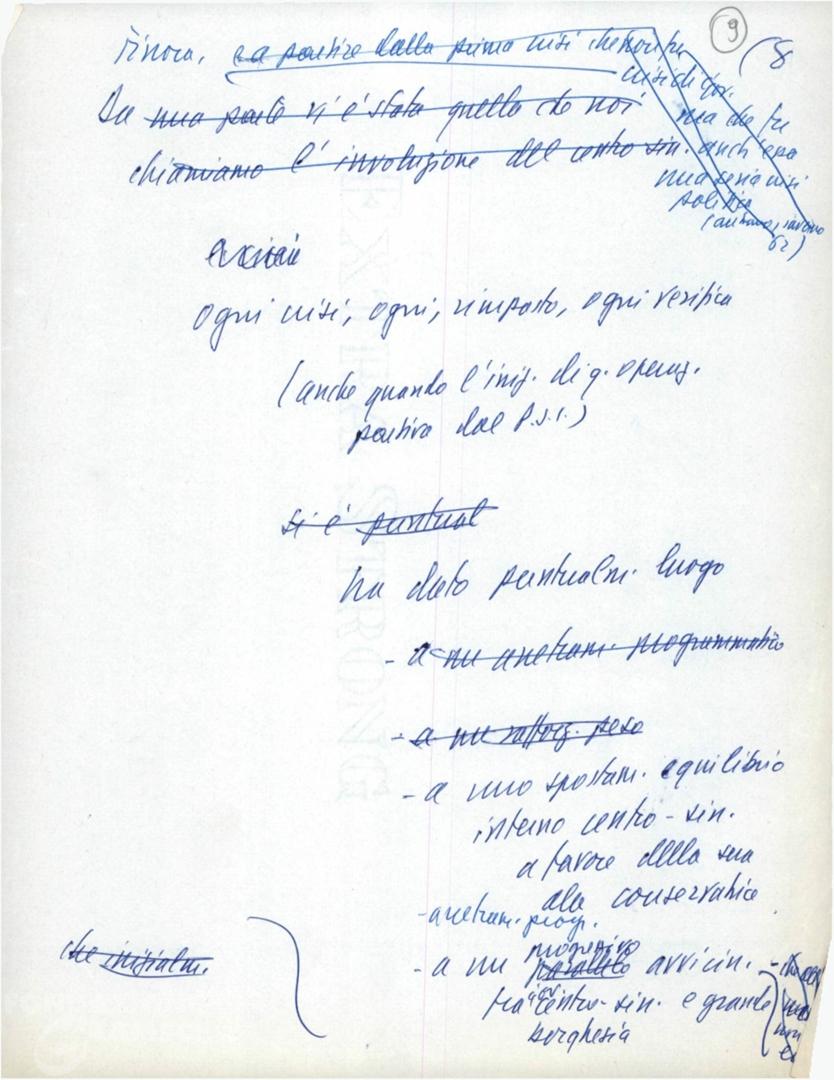 9
(8
Finora, ea partire dalla prima crisi che non fu
crisi di gov.
ma che fu
anch'essa
una seria crisi
politica
(autunno, inverno
62)
Da una parte vi è stata quella che noi
chiamiamo l'involuzione del centro sin.
ogni crisi, ogni, rimpasto, ogni verifica
(anche quando l'iniz. di q. operaz.
partiva dal P.S.I.)
si è puntual
ha dato puntualm. luogo
- a un arretram. programmatico
- a un rafforz. peso
- a uno spostam. equilibrio
interno centro-sin.
a favore della sua
ala conservatrice
- arretram. progr.
progressivo
- a un parallelo avvicin.
tra centro-sin. e grande
borghesia
che inizialm.